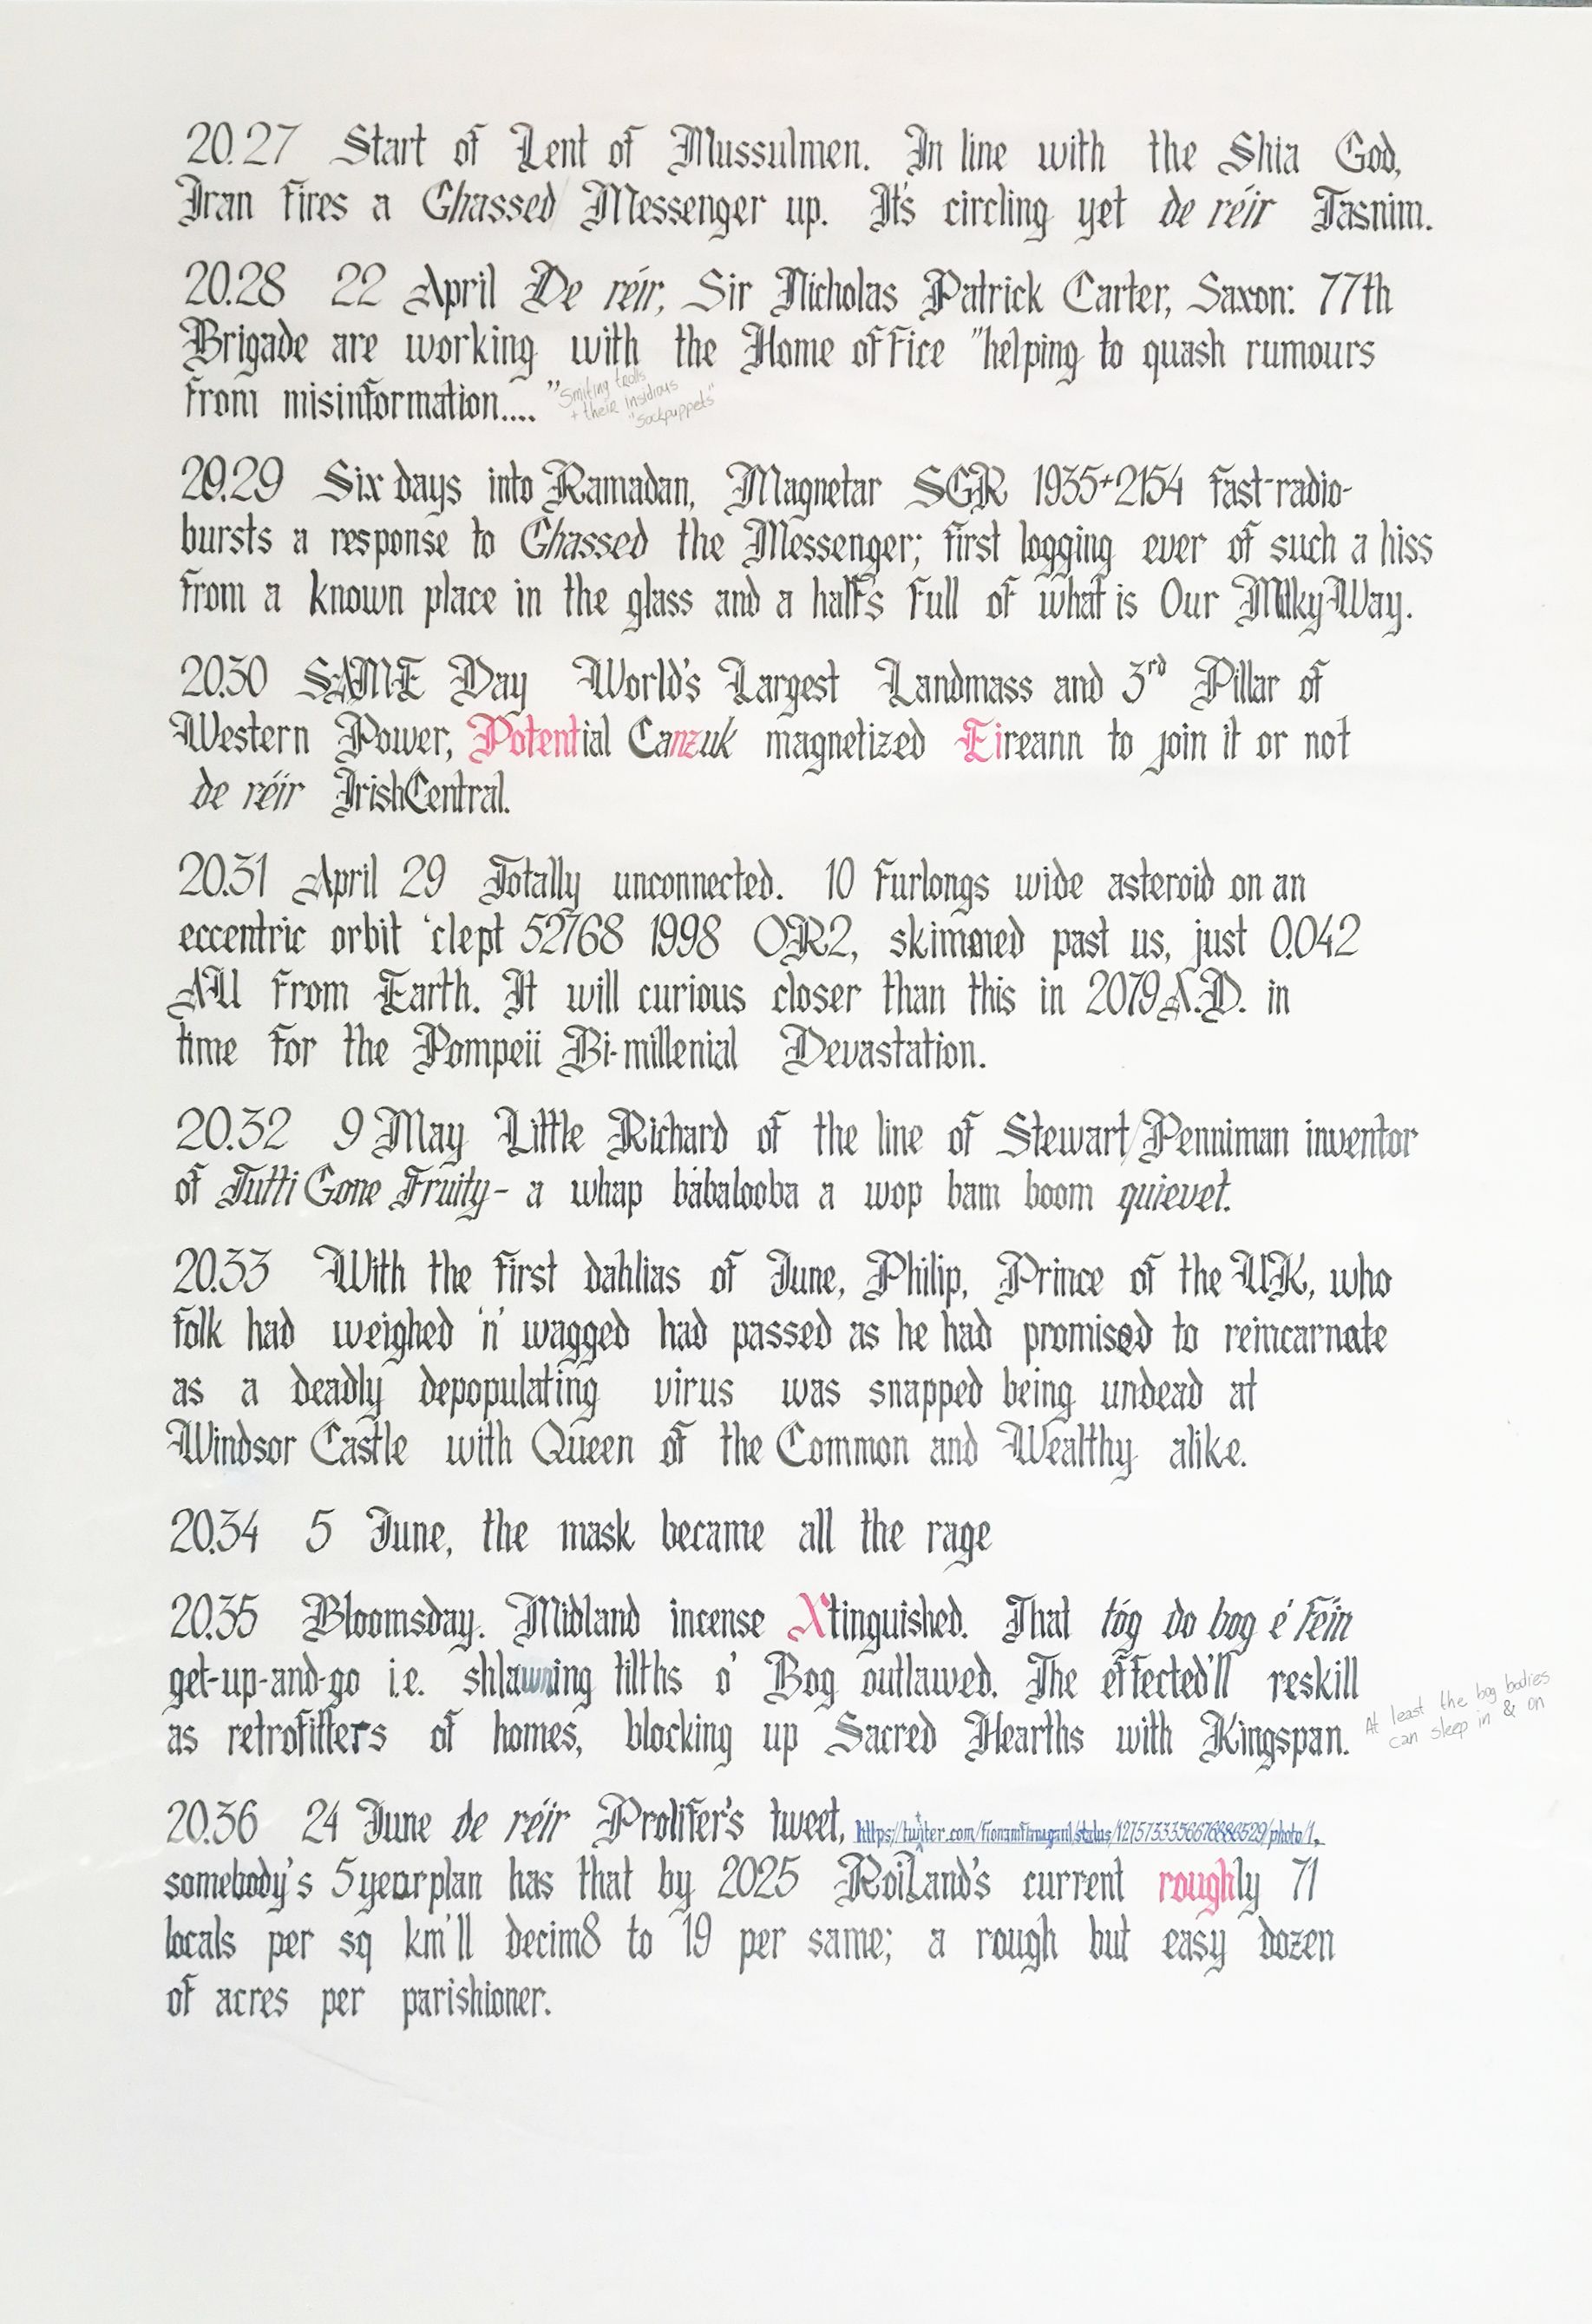 20.27 Start of Lent of Mussulmen. In line with the Shia God,
Iran fires a Ghassed Messenger up. It's circling yet de réir Tasnim.
20.28 22 April De réir, Sir Nicholas Patrick Carter, Saxon: 77th
Brigade are working with the Home office "helping to quash rumours
from misinformation...."
"Smiting trolls
+ their insidious
"sockpuppets"
20.29 Six days into Ramadan, Magnetar SGR 1935+2154 fast-radio-
bursts a response to Ghassed the Messenger; first logging ever of such a hiss
from a known place in the glass and a half's full of what is Our Milky-Way.
20.30 SAME Day World's Largest Landmass and 3rd Pillar of
Western Power, Potential Canzuk magnetized Eireann to join it or not
de réir IrishCentral.
20.31 April 29 Totally unconnected. 10 furlongs wide asteroid on an
eccentric orbit 'clept 52768 1998 OR2, skimmed past us, just 0.042
AU from Earth. It will curious closer than this in 2079 A.D. in
time for the Pompeii Bi-millenial Devastation.
20.32 9 May Little Richard of the line of Stewart/Penniman inventor
of Tutti Gone Fruity - a whap bábalooba a wop bam boom quievet.
20.33 With the first dahlias of June, Philip, Prince of the UK, who
folk had weighed 'n' wagged had passed as he had promised to reincarnate
as a deadly depopulating virus was snapped being undead at
Windsor Castle with Queen of the Common and Wealthy alike.
20.34 5 June, the mask became all the rage
20.35 Bloomsday. Midland incense Xtinguished. That tóg do bog é féin
get-up-and-go i.e. shlawning tilths o' Bog outlawed. The effected'll reskill
as retrofitters of homes, blocking up Sacred Hearths with Kingspan.
At least the bog bodies
can sleep in & on
20.36 24 June de réir Prolifer's tweet,
somebody's 5 year plan has that by 2025 RoiLand's current roughly 71
locals per sq km'll decim8 to 19 per same; a rough but easy dozen
of acres per parishioner.